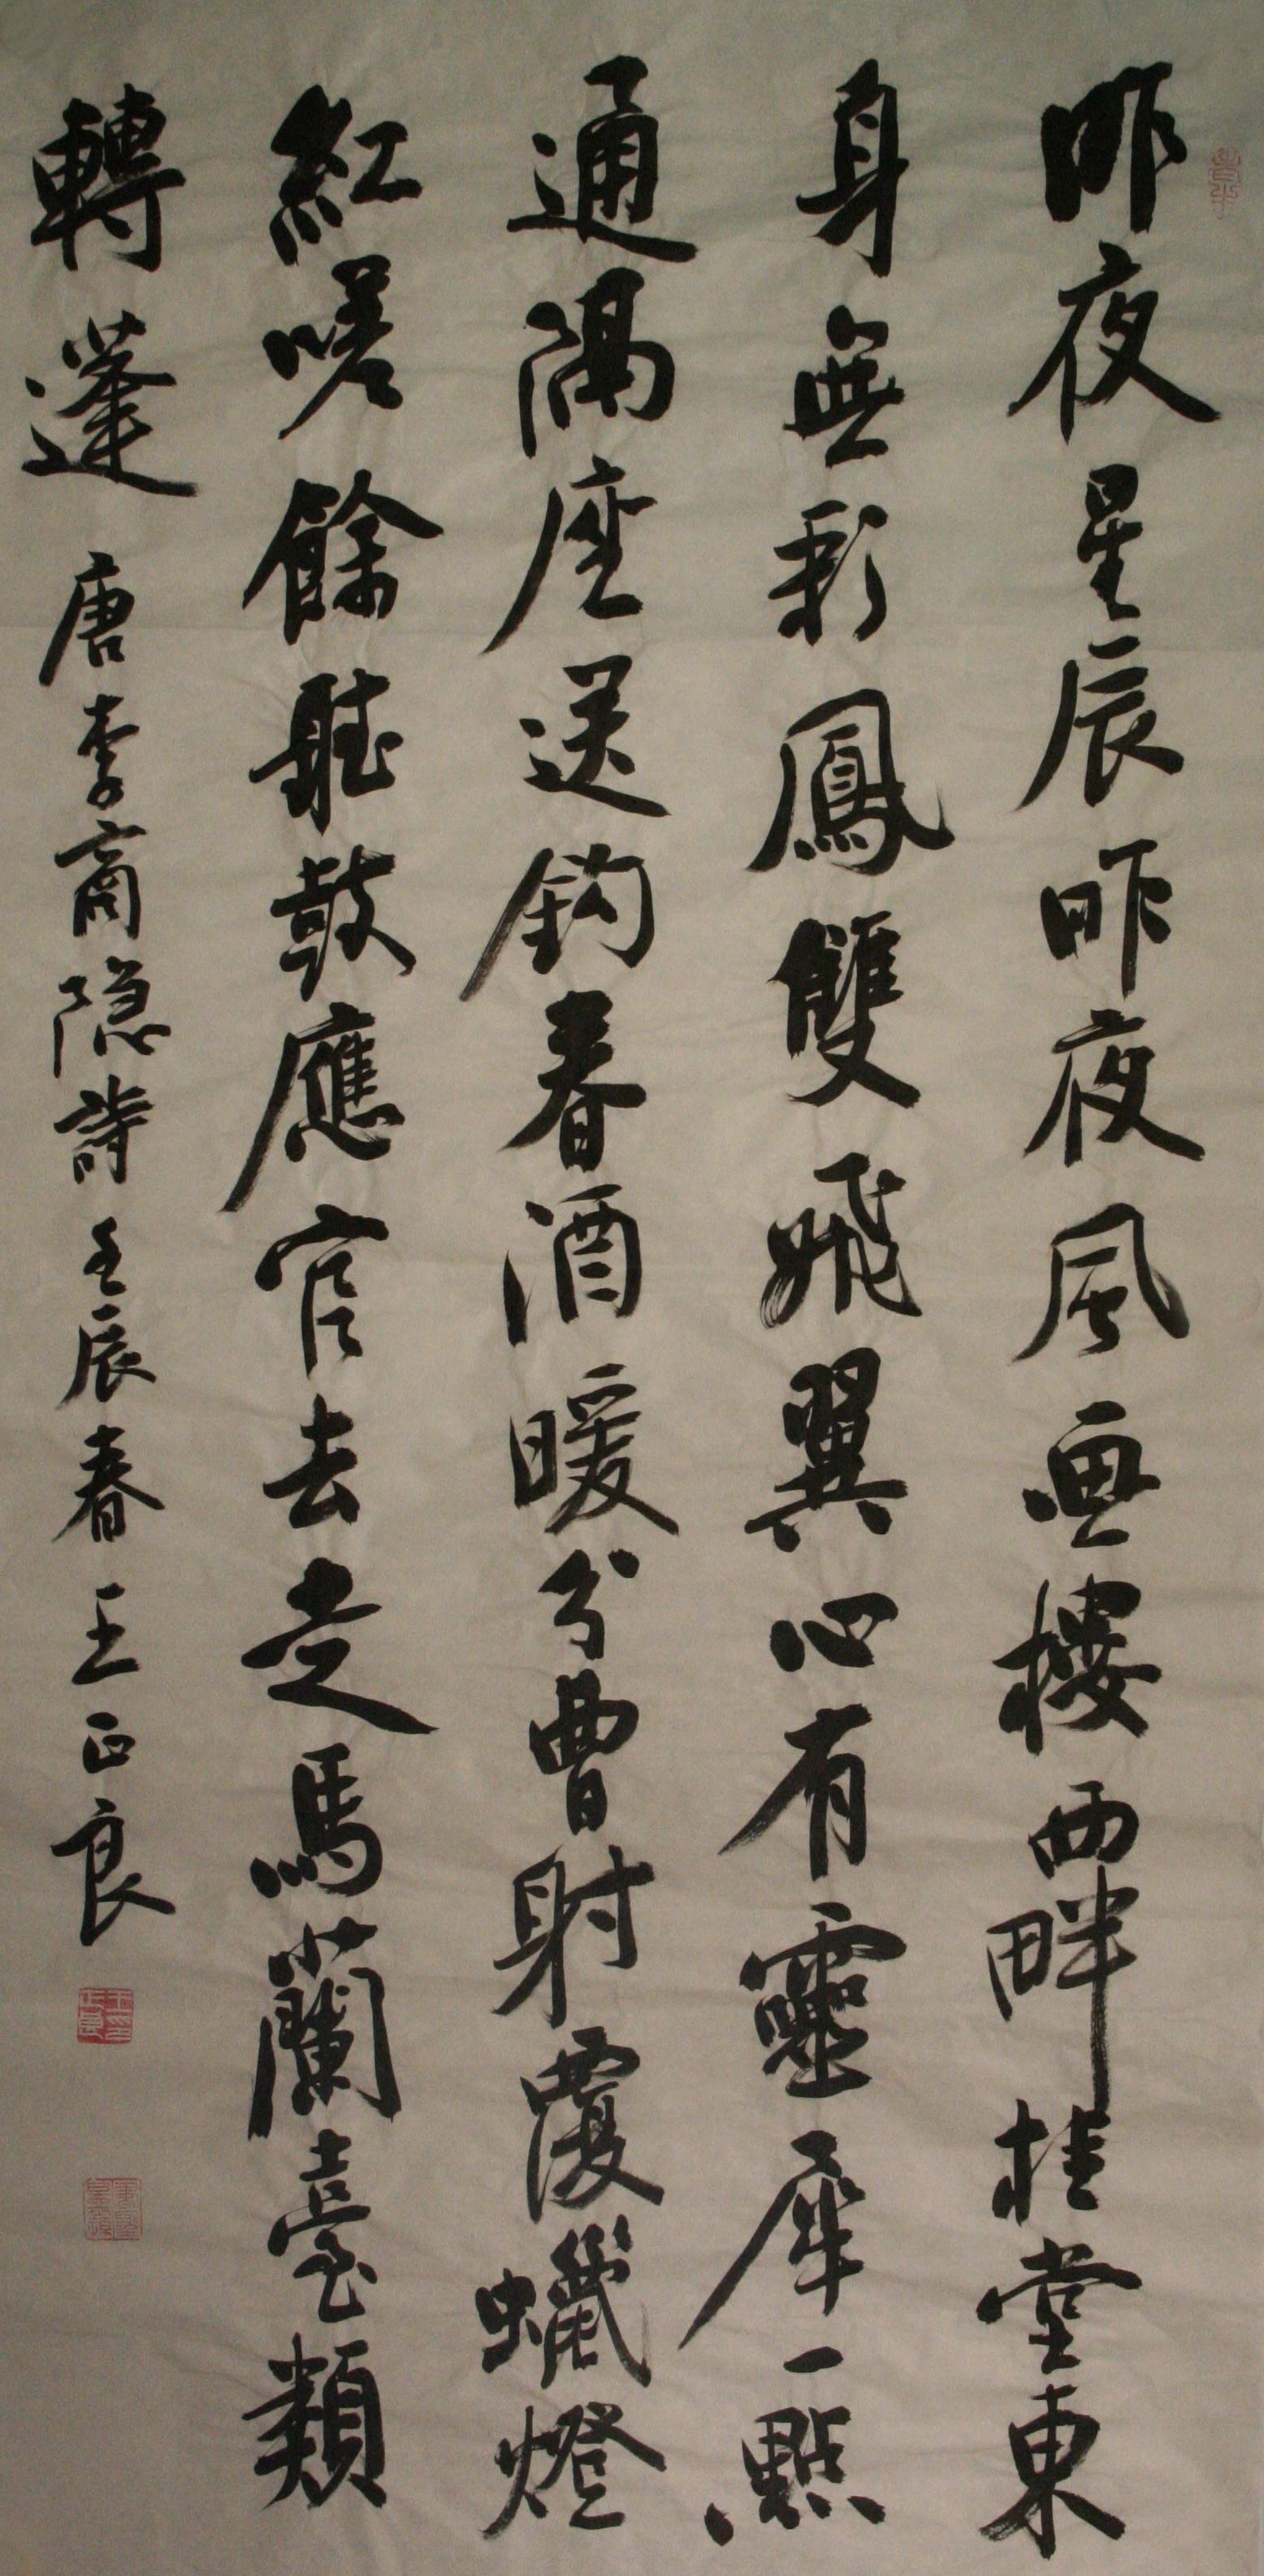 昨夜星辰昨夜風画樓西畔桂堂東
身無彩鳳雙飛翼心有靈犀一點
通隔座送鈎春酒暖分曹射覆蠟燈
紅嗟餘聽鼓應官去走馬蘭臺類
轉蓬 唐李商隐詩 壬辰春王正良